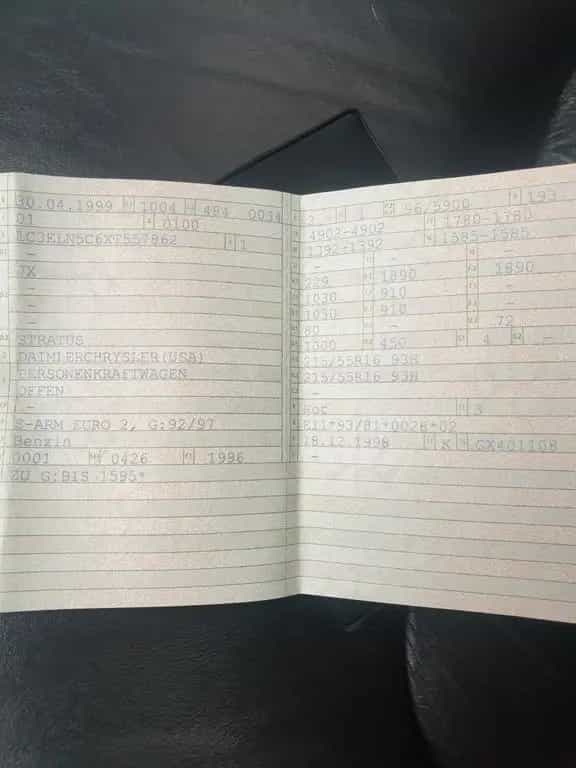 30.04.1999 1004 484 0034
01 0100
1C3ELN5C6XT557862 1
-
JX
-
-
-
STRATUS
DAIMLERCHRYSLER(USA)
PERSONENKRAFTWAGEN
OFFEN
-
S-ARM EURO 2, G:92/97
Benzin
0001 0426 1996
ZU G:BIS 1595*
2 1 96/5900 193
4902-4902 1780-1780
1392-1392 1585-1585
-
229 1890 1890
1030 910
1030 910
80 - 72
1000 450 4 -
215/55R16 93H
215/55R16 93H
-
rot 3
E11*93/81*0028*02
18.12.1998 K GX401108
-